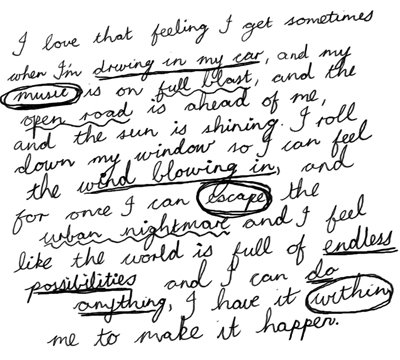 I love that feeling I get sometimes
when I'm driving in my car, and my
music is on full blast, and the
open road is ahead of me,
and the sun is shining. I roll
down my window so I can feel
the wind blowing in, and
for once I can escape the
urban nightmare and I feel
like the world is full of endless
possibilities and I can do
anything, I have it within
me to make it happen.